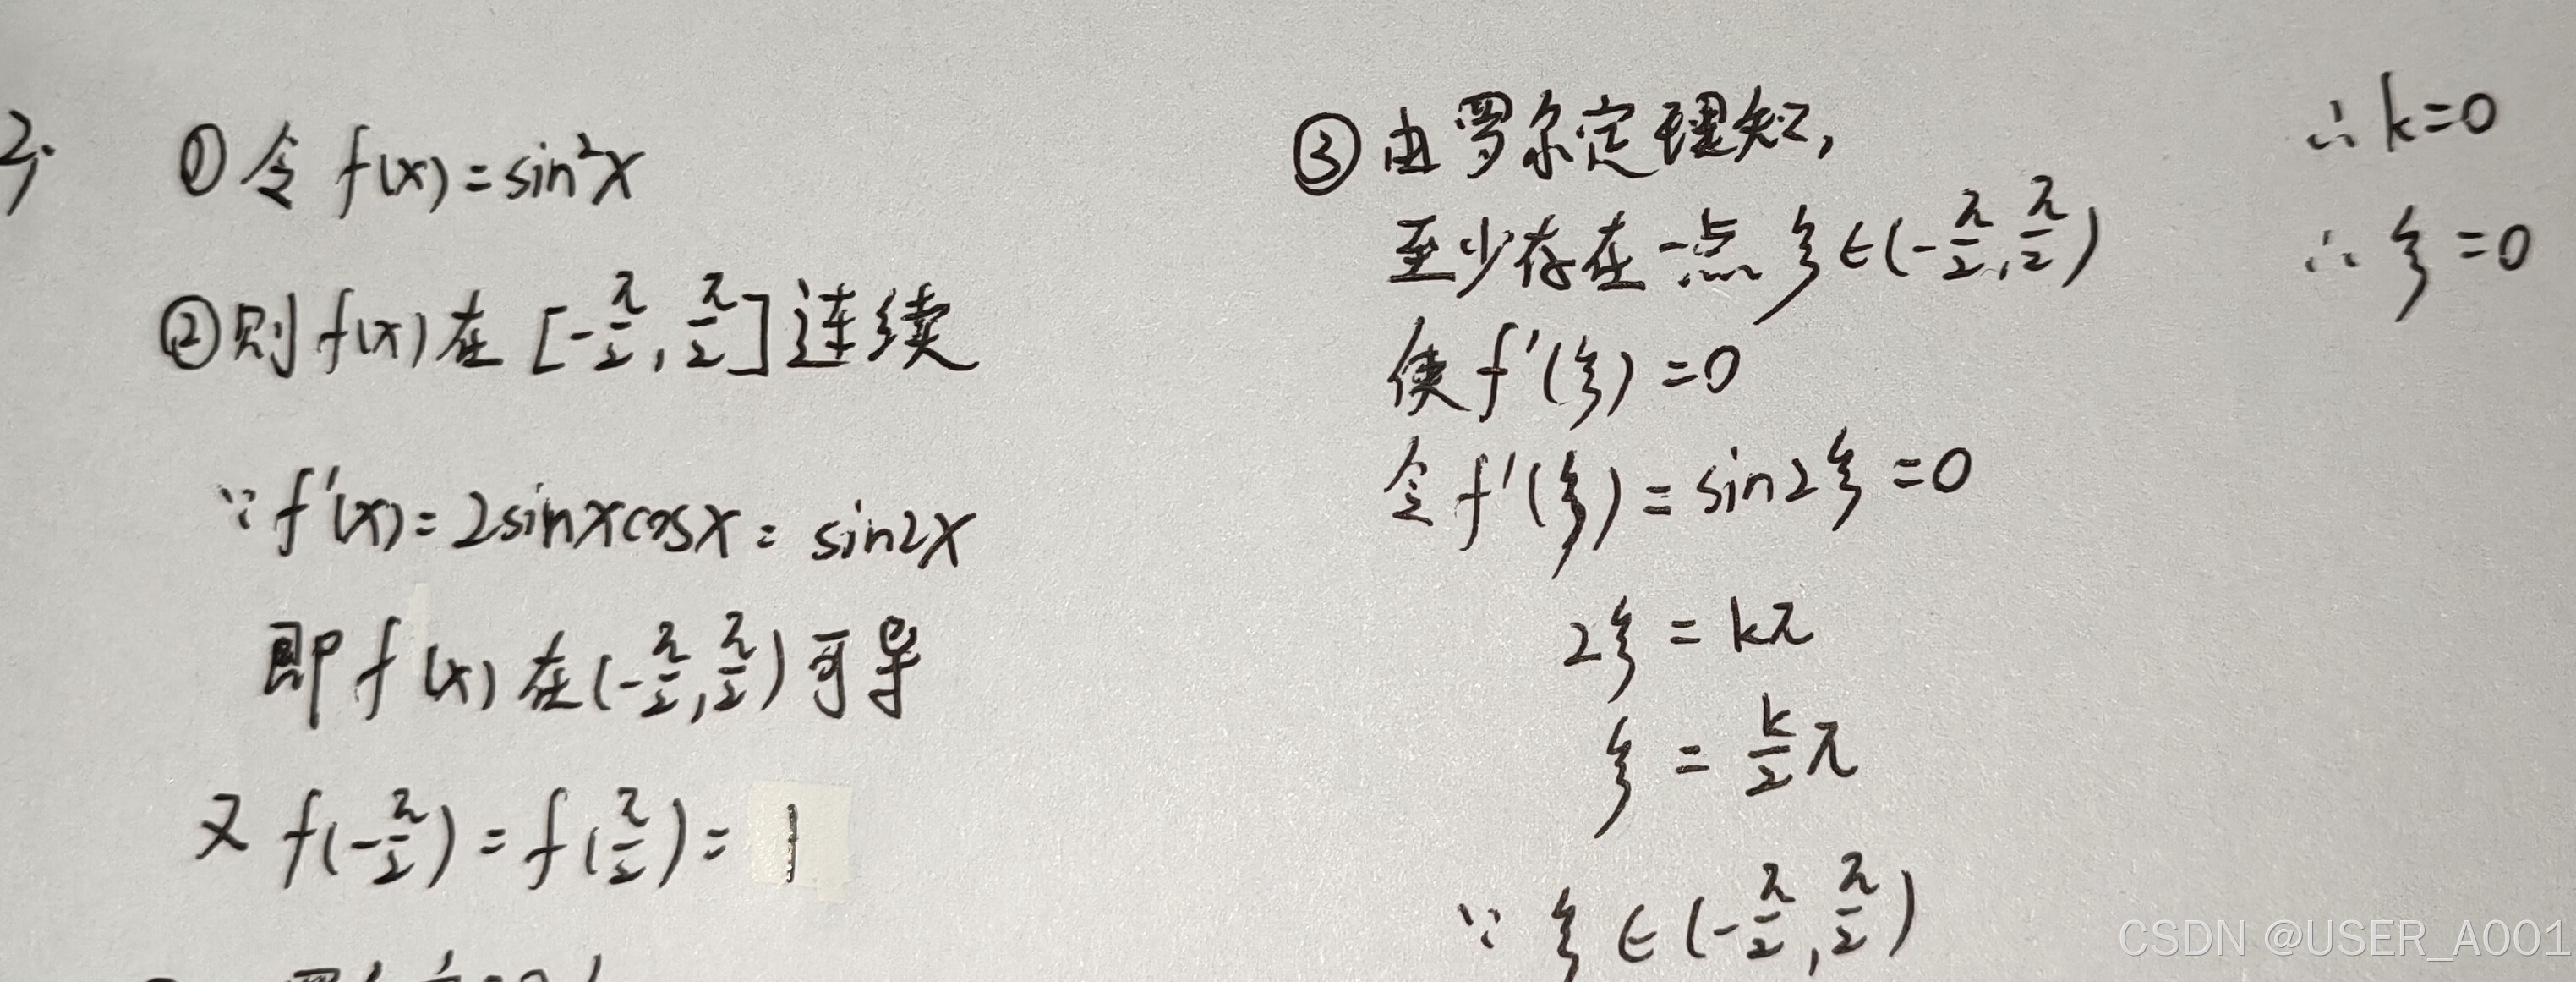 2.
① 令 f(x) = sin²x
② 则 f(x) 在 [-π/2, π/2] 连续
∵ f'(x) = 2sinxcosx = sin2x
即 f(x) 在 (-π/2, π/2) 可导
又 f(-π/2) = f(π/2) = 1
③ 由罗尔定理知,
至少存在一点 ξ∈(-π/2, π/2)
使 f'(ξ) = 0
令 f'(ξ) = sin2ξ = 0
2ξ = kπ
ξ = k/2 π
∵ ξ ∈ (-π/2, π/2)
∴ k=0
∴ ξ = 0
CSDN @USER_A001